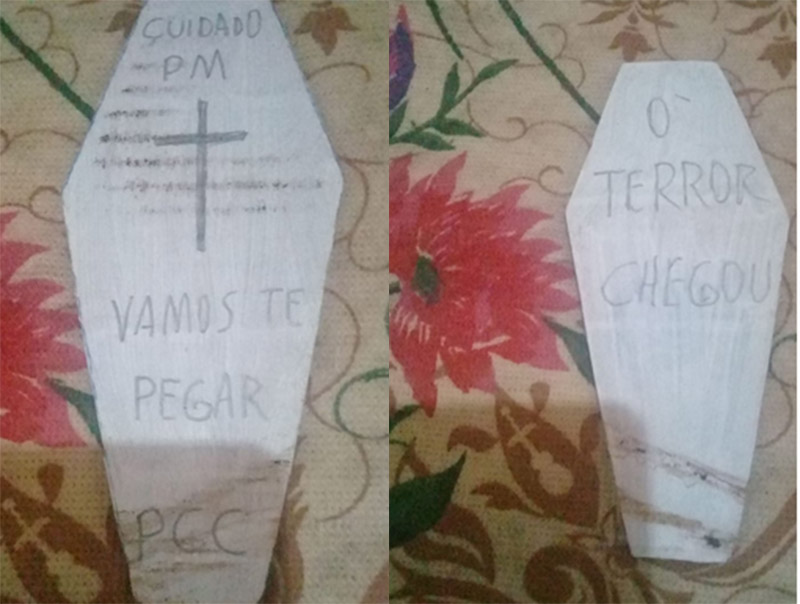 CUIDADO
PM
VAMOS TE
PEGAR
PCC
O`
TERROR
CHEGOU